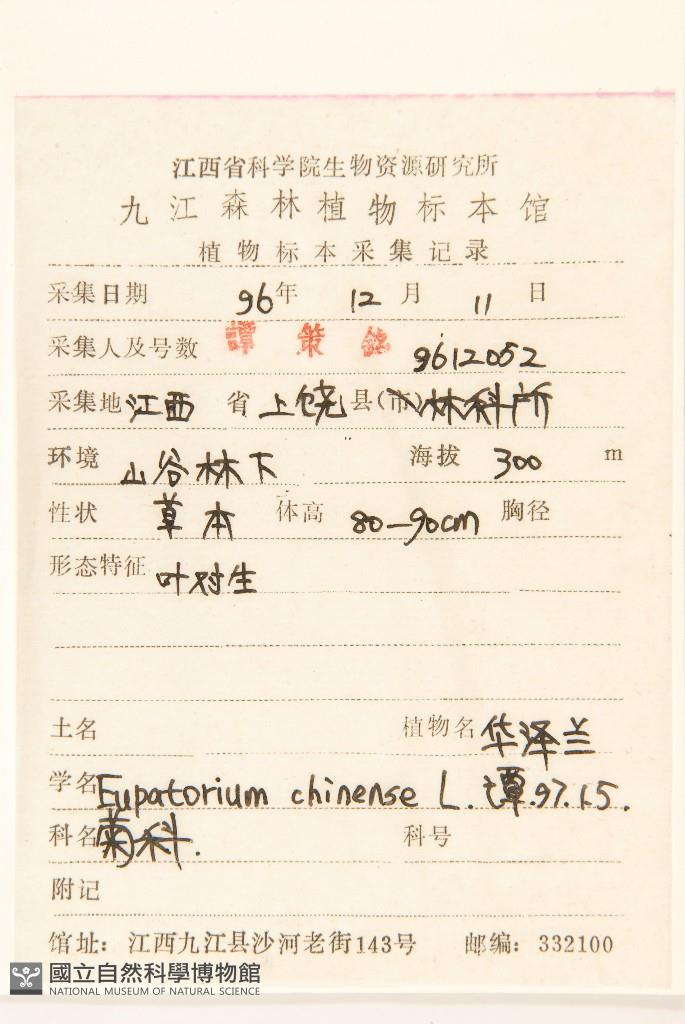 江西省科学院生物资源研究所
九江森林植物标本馆
植物标本采集记录
采集日期 96年 12月 11日
采集人及号数 譚策銘 9612052
采集地 江西 省 上饶 县(市) 林科所
环境 山谷林下 海拔 300 m
性状 草本 体高 80-90cm 胸径
形态特征 叶对生
土名 植物名 华泽兰
学名 Eupatorium chinense L. 谭.97.1.5.
科名 菊科. 科号
附记
馆址：江西九江县沙河老街143号 邮编：332100
國立自然科學博物館
NATIONAL MUSEUM OF NATURAL SCIENCE